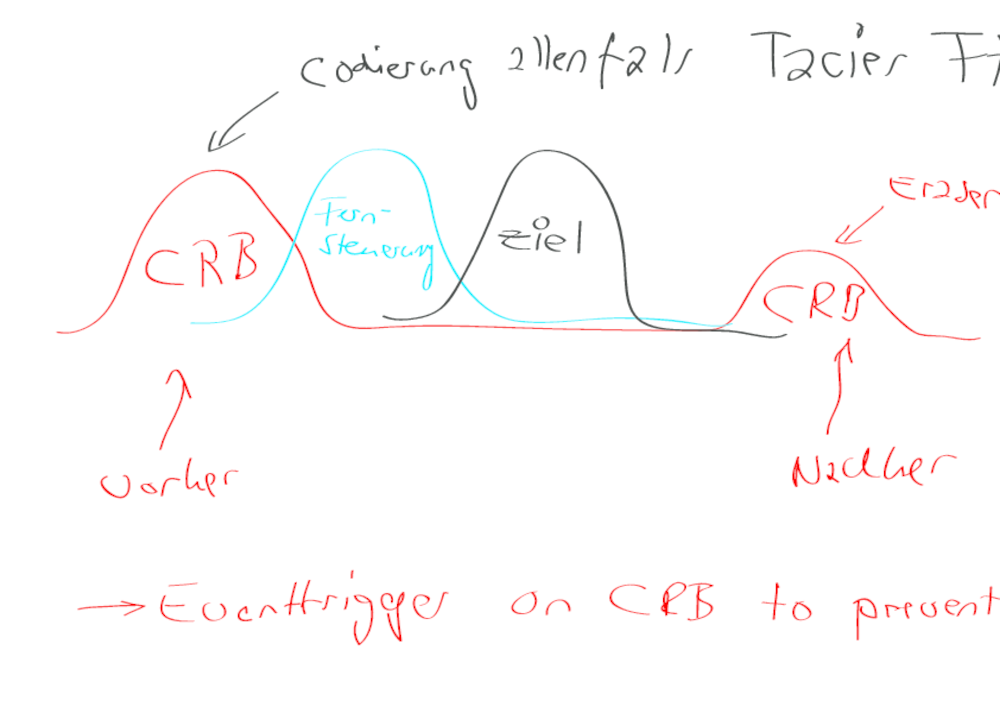 Codierung allenfalls
Fern-
steuerung
Ziel
CRB
CRB
vorher
Nachher
→ Eventtrigger on CRB to prevent